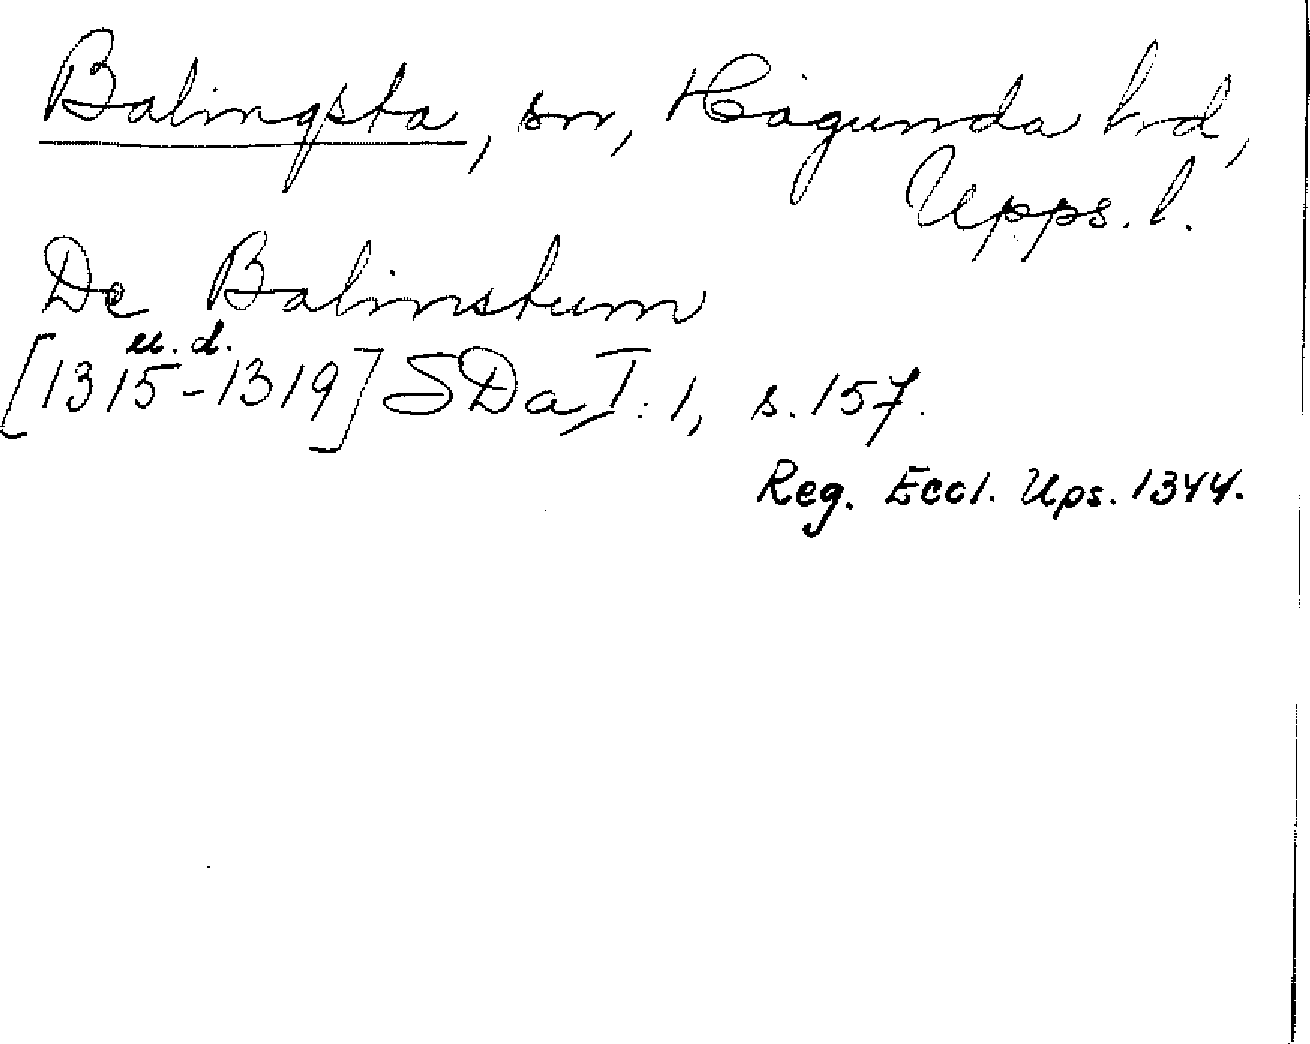 Balingsta, sn, Hagunda hd,
Upps. l.
De Balinstum
u. d.
[1315-1319] SDa I:1, s. 157.
Reg. Eccl. Ups. 1344.